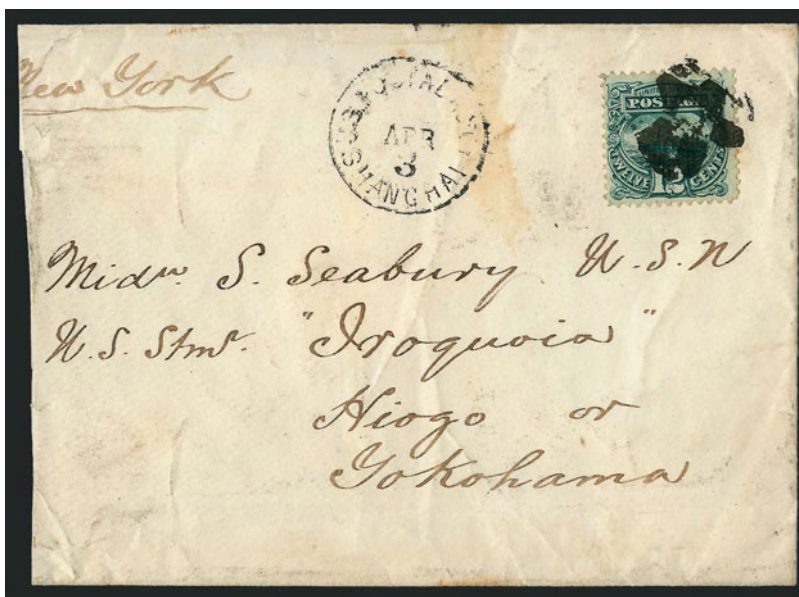 New York
U.S. POSTAL AGCY.
APR
3
SHANGHAI
UNITED
POSTAGE
TWELVE 12 CENTS
Midn. S. Seabury U.S.N
U.S. Stmr. "Iroquois"
Hiogo or
Yokohama